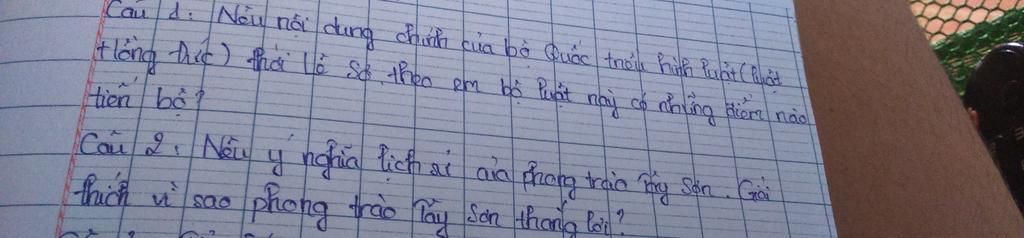 Câu 1: Nêu nội dung chính của bộ Quốc triều hình luật (luật
Hồng Đức) thời Lê Sơ, theo em bộ luật này có những điểm nào
tiến bộ?
Câu 2: Nêu ý nghĩa lịch sử của phong trào Tây Sơn. Giải
thích vì sao phong trào Tây Sơn thắng lợi?